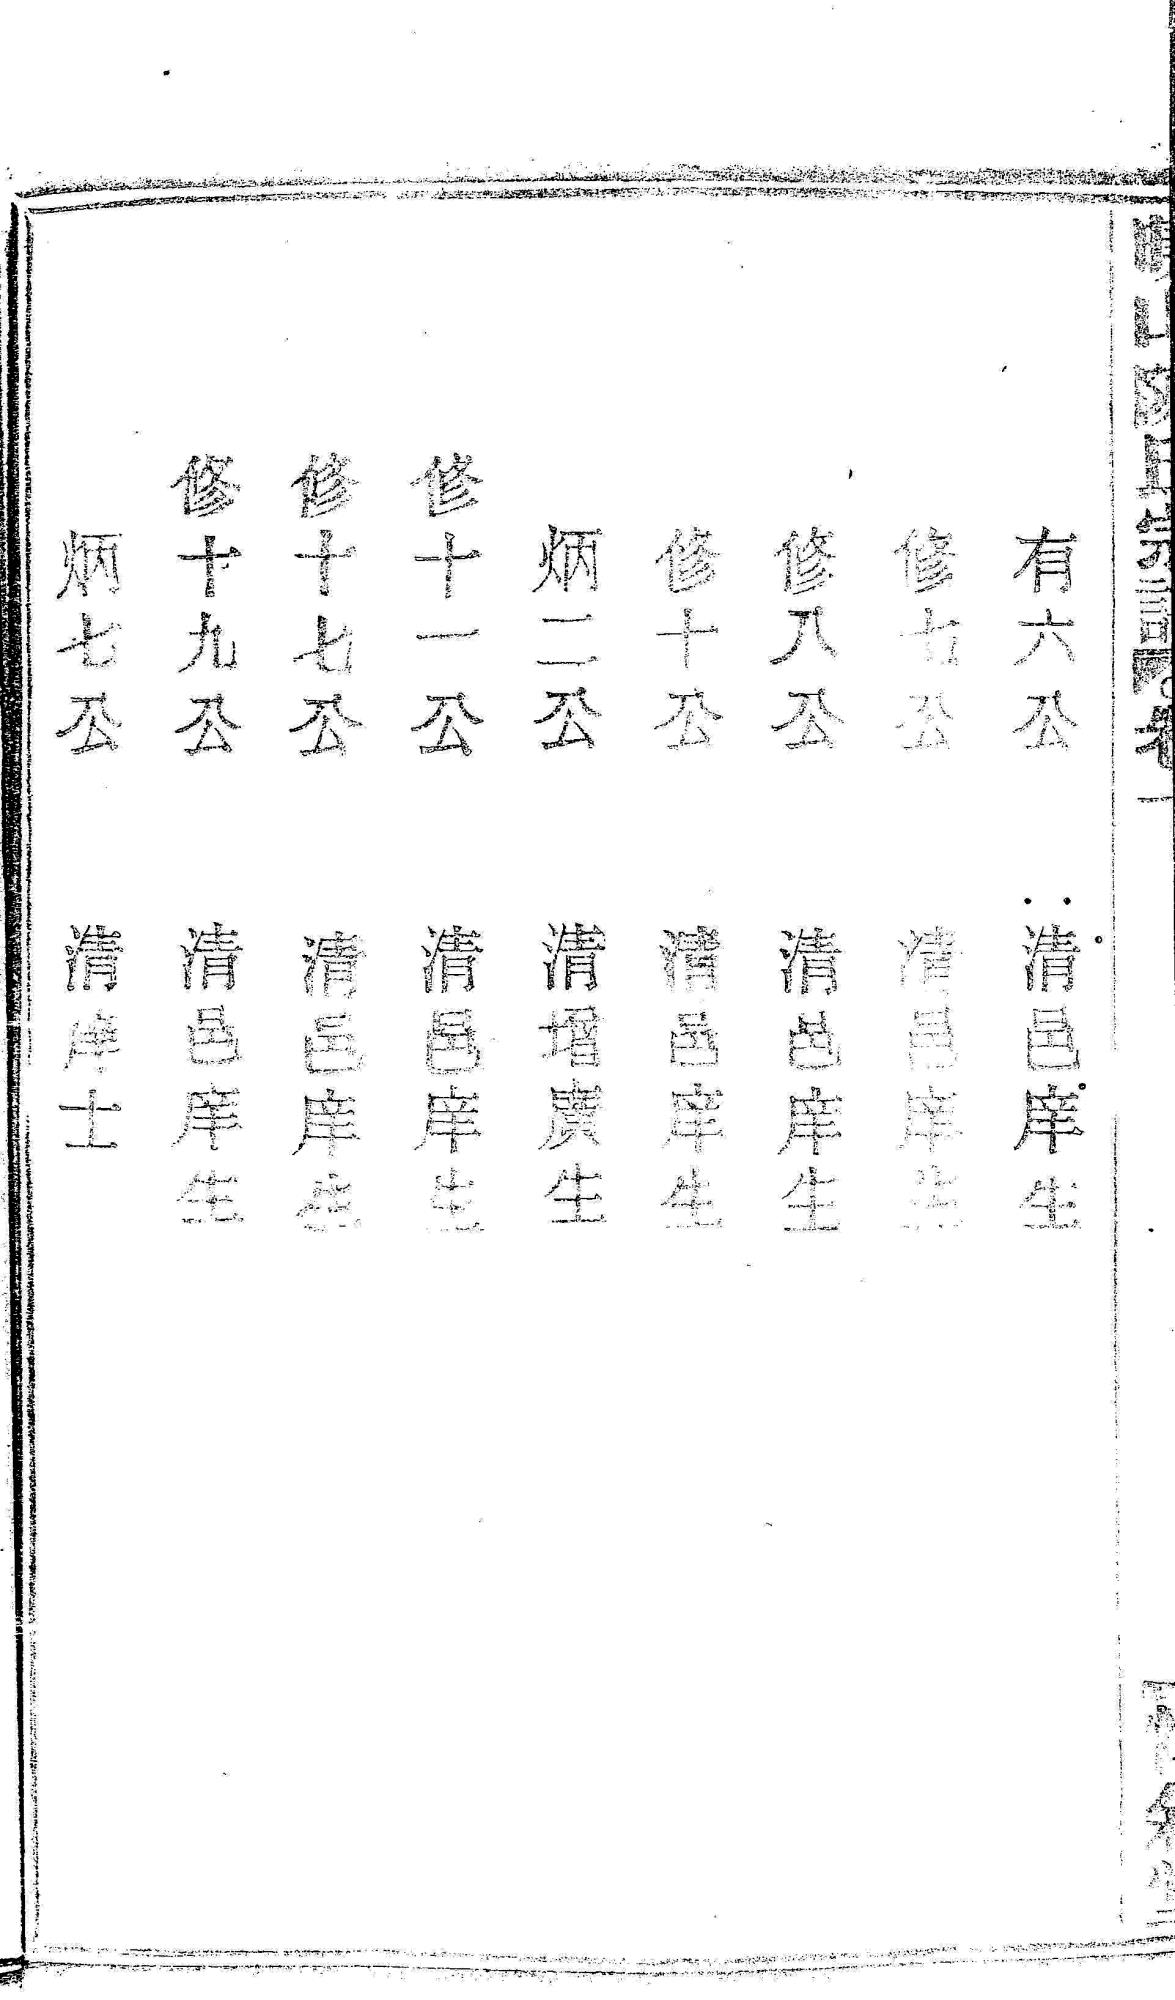 有六公　清邑庠生
修七公　清邑庠生
修八公　清邑庠生
修十公　清邑庠生
炳二公　清增廣生
修十一公　清邑庠生
修十七公　清邑庠生
修十九公　清邑庠生
炳七公　清庠士